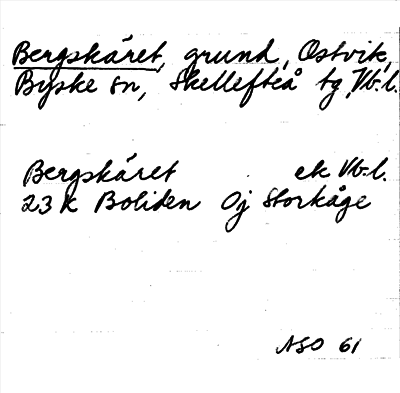 Bergskäret, grund, Ostvik,
Byske sn, Skellefteå tg, Vb.l.
Bergskäret ek Vb.l.
23 K Boliden Öj Storkåge
ASO 61